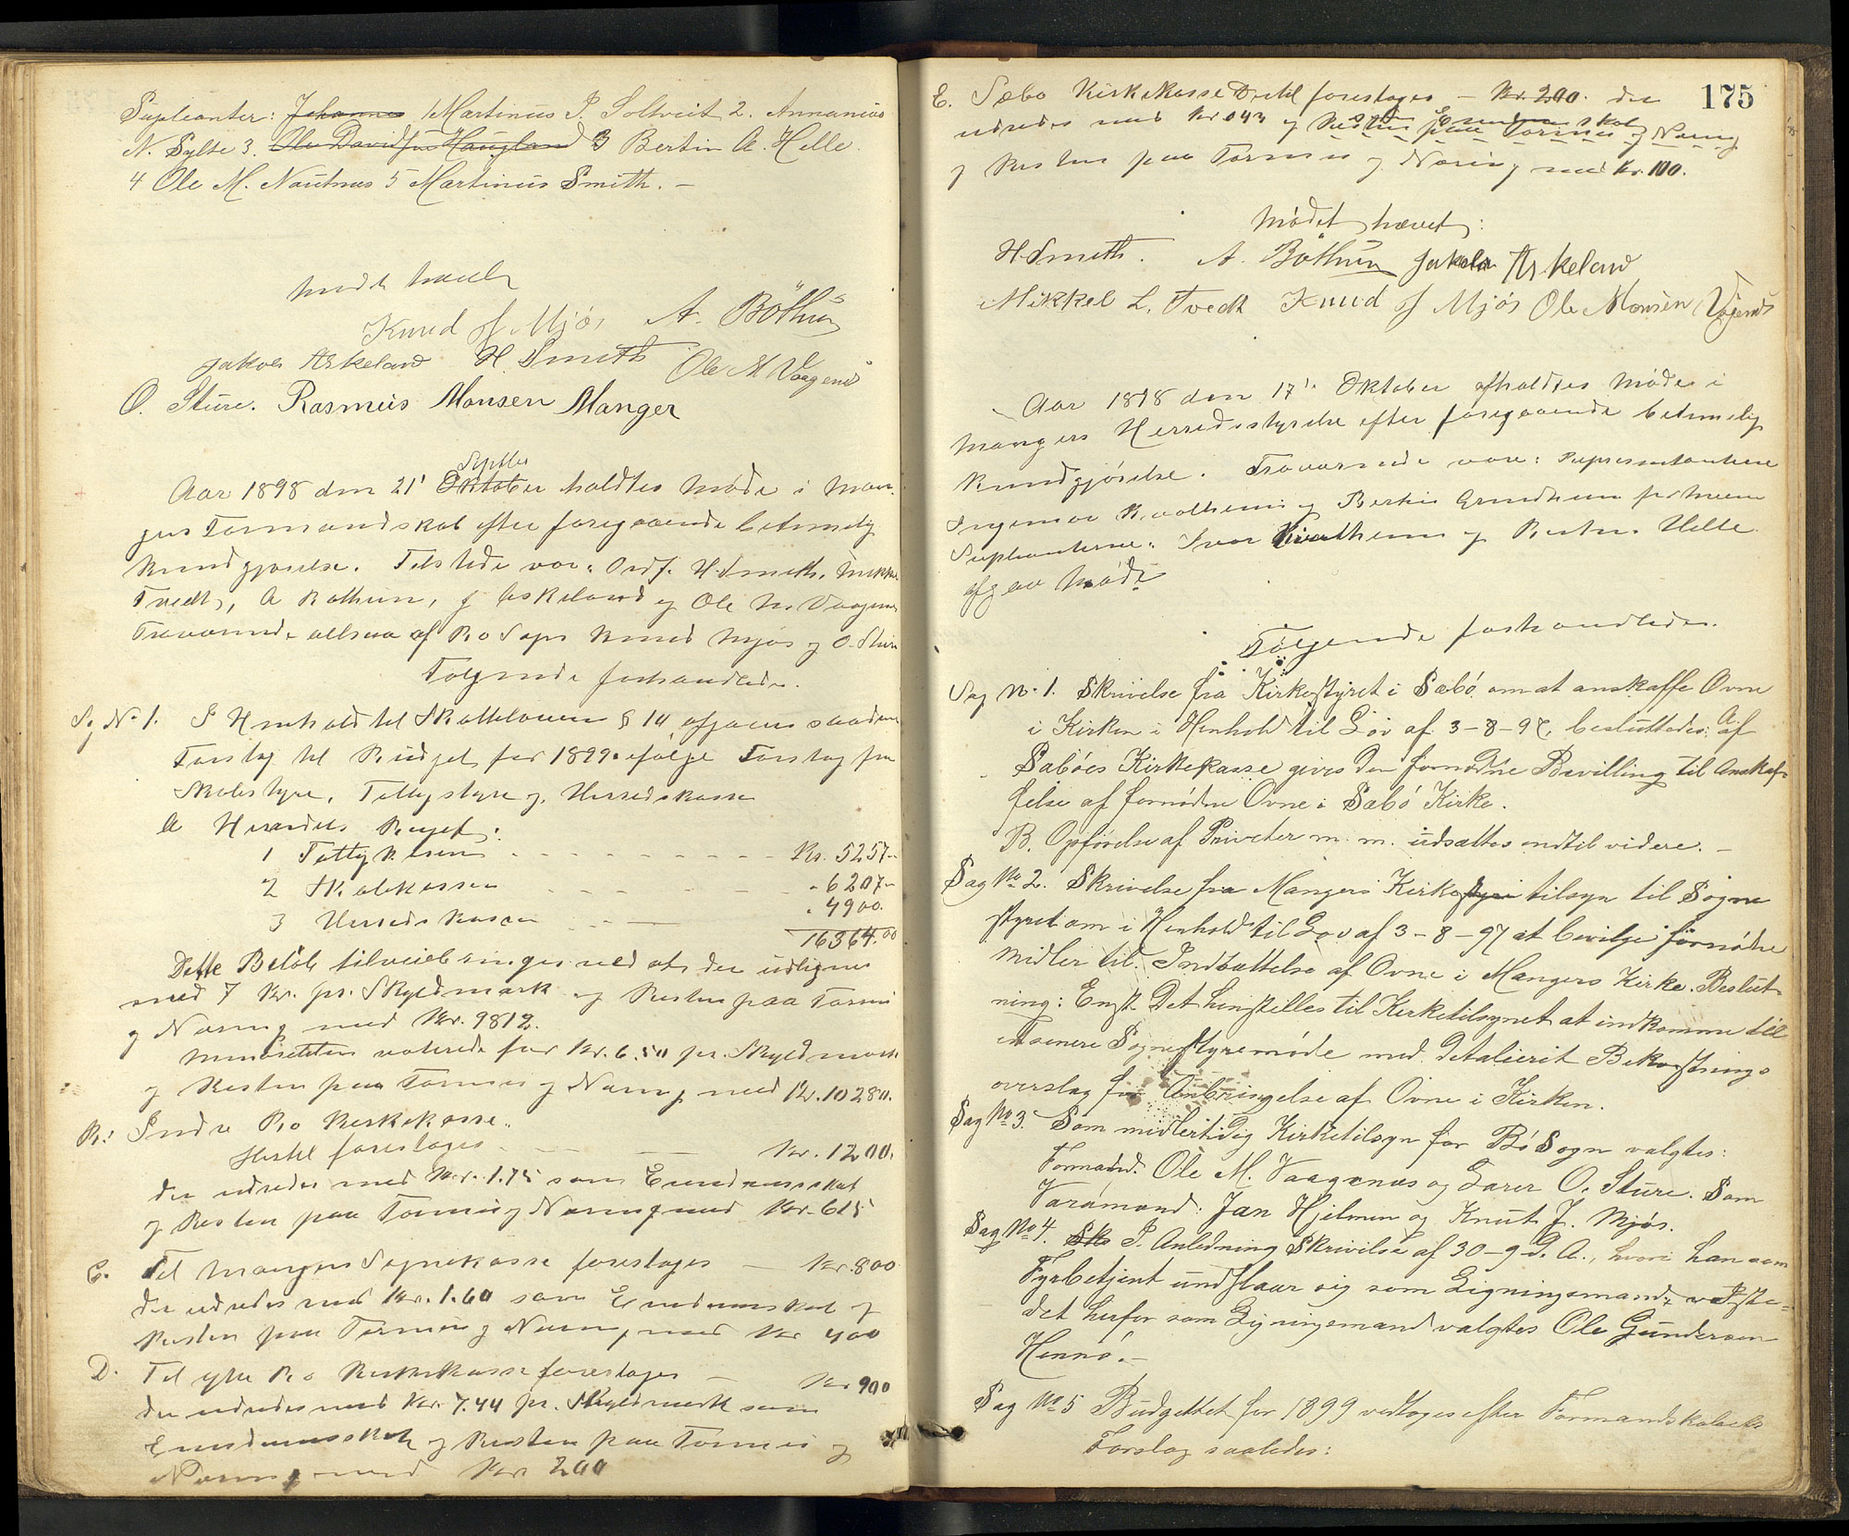 Supleanter: Johannes Martinus P. Soltveit 2. Annanias
N. Sylte 3. Ole Davidsøn Haugland 3 Bertin A. Helle.
4 Ole M. Nautnes 5 Martinus Smith. –
Mødet hævet
Knud J Mjøs A. Böthun
Jakob Askeland H. Smith Ole M Vaagenes
O. Sture. Rasmus Monsen Manger
Septbr
Aar 1898 den 21' Oktober holdtes Møde i Man-
gers Formandskab efter foregaaende betimelig
Kundgjørelse. Tilstede var: Ordf. H. Smith, Mikkel
Tvedt, A Bothun, J Askeland og Ole M. Vaagenes
Fraværende altsaa af Bø Sogn Knud Mjøs og O. Sture
Følgende forhandledes.
Sag No 1. I Henhold til Skatteloven § 14 afgaves saadant
Forslag til Budget for 1899 ifølge Forslag fra
Skolestyre, Fattigstyre og Herredskasse
A Herredets Budget:
1 Fattigkassen - - - - - Kr. 5257 -
2 Skolekassen - - - - - " 6207 -
3 Herredskassen - - - " 4900.
16364.00
Dette Beløb tilveiebringes ved at der udlignes
med 7 Kr. pr. Skyldmark og Resten paa Formue
og Næring med Kr. 9812.
Minoriteten voterede for Kr. 6.50 pr. Skyldmark
og Resten paa Formue og Næring med Kr. 10280.
B: Indre Bø Kirkekasse.
Hertil foreslages - - - Kr. 1200.
der udredes med Kr. 1.75 som Eiendomsskat
og Resten paa Formue og Næring med Kr. 615
C. Til Mangers Sognekasse foreslages – Kr. 800
der udredes med Kr. 1.60 som Eiendomsskat og
Resten paa Formue og Næring med Kr 400
D. Til ytre Bø Kirkekasse foreslages – Kr 900
der udredes med Kr. 7.44 pr. Skyldmark som
Eiendomsskat og Resten paa Formue og
Næring med Kr 200
175
E. Sæbø Kirkekasse Dertil foreslages – Kr. 200. der
udredes med Kr 0.43 og Resten paa Formue og Næring
som Eiendomsskat
og Resten paa Formue og Næring med Kr. 100.
Mødet hævet:
H. Smith. A. Böthun Jakob Askeland
Mikkel L. Tvedt Knud J Mjøs Ole Monsen Vågenes
Aar 1898 den 17' Oktober afholdtes Møde i
Mangers Herredsstyrelse efter foregaaende betimelig
Kundgjørelse. Fraværende vare: Repræsentanterne
Ingemar og Bertin Grindheim for hvem
Supleanterne: Ivar og Bertin Helle
afgav Møde
Følgende forhandledes.
Sag No. 1. Skrivelse fra Kirkestyret i Sæbø om at anskaffe Ovne
i Kirken i Henhold til Lov af 3-8-97, besluttedes: A. af
Sæbøes Kirkekasse gives den fornødne Bevilling til Anskaf-
felse af fornødne Ovne i Sæbø Kirke.
B. Opførelse af Priveter m. m. udsættes indtil videre. –
Sag No 2. Skrivelse fra Mangers Kirkestyre tilsyn til Sogne
styret om i Henhold til Lov af 3-8-97 at bevilge fornødne
Midler til Indsættelse af Ovne i Mangers Kirke. Beslut-
ning: Enst. Det henstilles til Kirketilsynet at indkomme til
et senere Sognestyremøde med detalieret Bekostnings
overslag for Anbringelse af Ovne i Kirken.
Sag No 3. Som midlertidig Kirketilsyn for Bø Sogn valgtes:
Formand. Ole M. Vaagenes og Lærer O. Sture. Som
Varamænd: Jan Hjelmen og Knut J. Mjøs.
Sag No 4. Skr I Anledning Skrivelse af 30-9 d. A., hvori han som
Fyrbetjent undslaar sig som Ligningsmand, i Ste-
det herfor som Ligningsmand valgtes Ole Gundersen
Hennø. –
Sag No 5 Budgettet for 1899 vedtoges efter Formandskabets
Forslag saaledes: